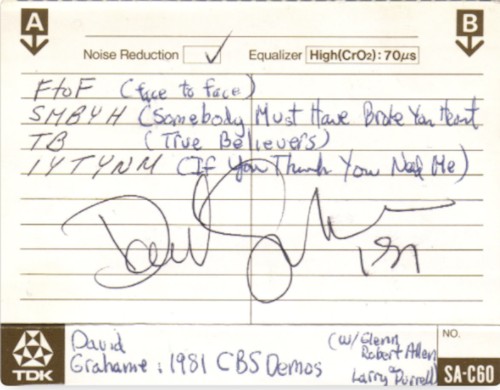 A B
Noise Reduction ✓ Equalizer High(CrO2): 70μs
FtoF (face to face)
SMBYH (Somebody Must Have Broke Your Heart)
TB (True Believers)
IYTYNM (If You Think You Need Me)
David
Grahame: 1981 CBS Demos
(w/ Glenn
Robert Allen
Larry Durrell)
TDK
NO.
SA-C60